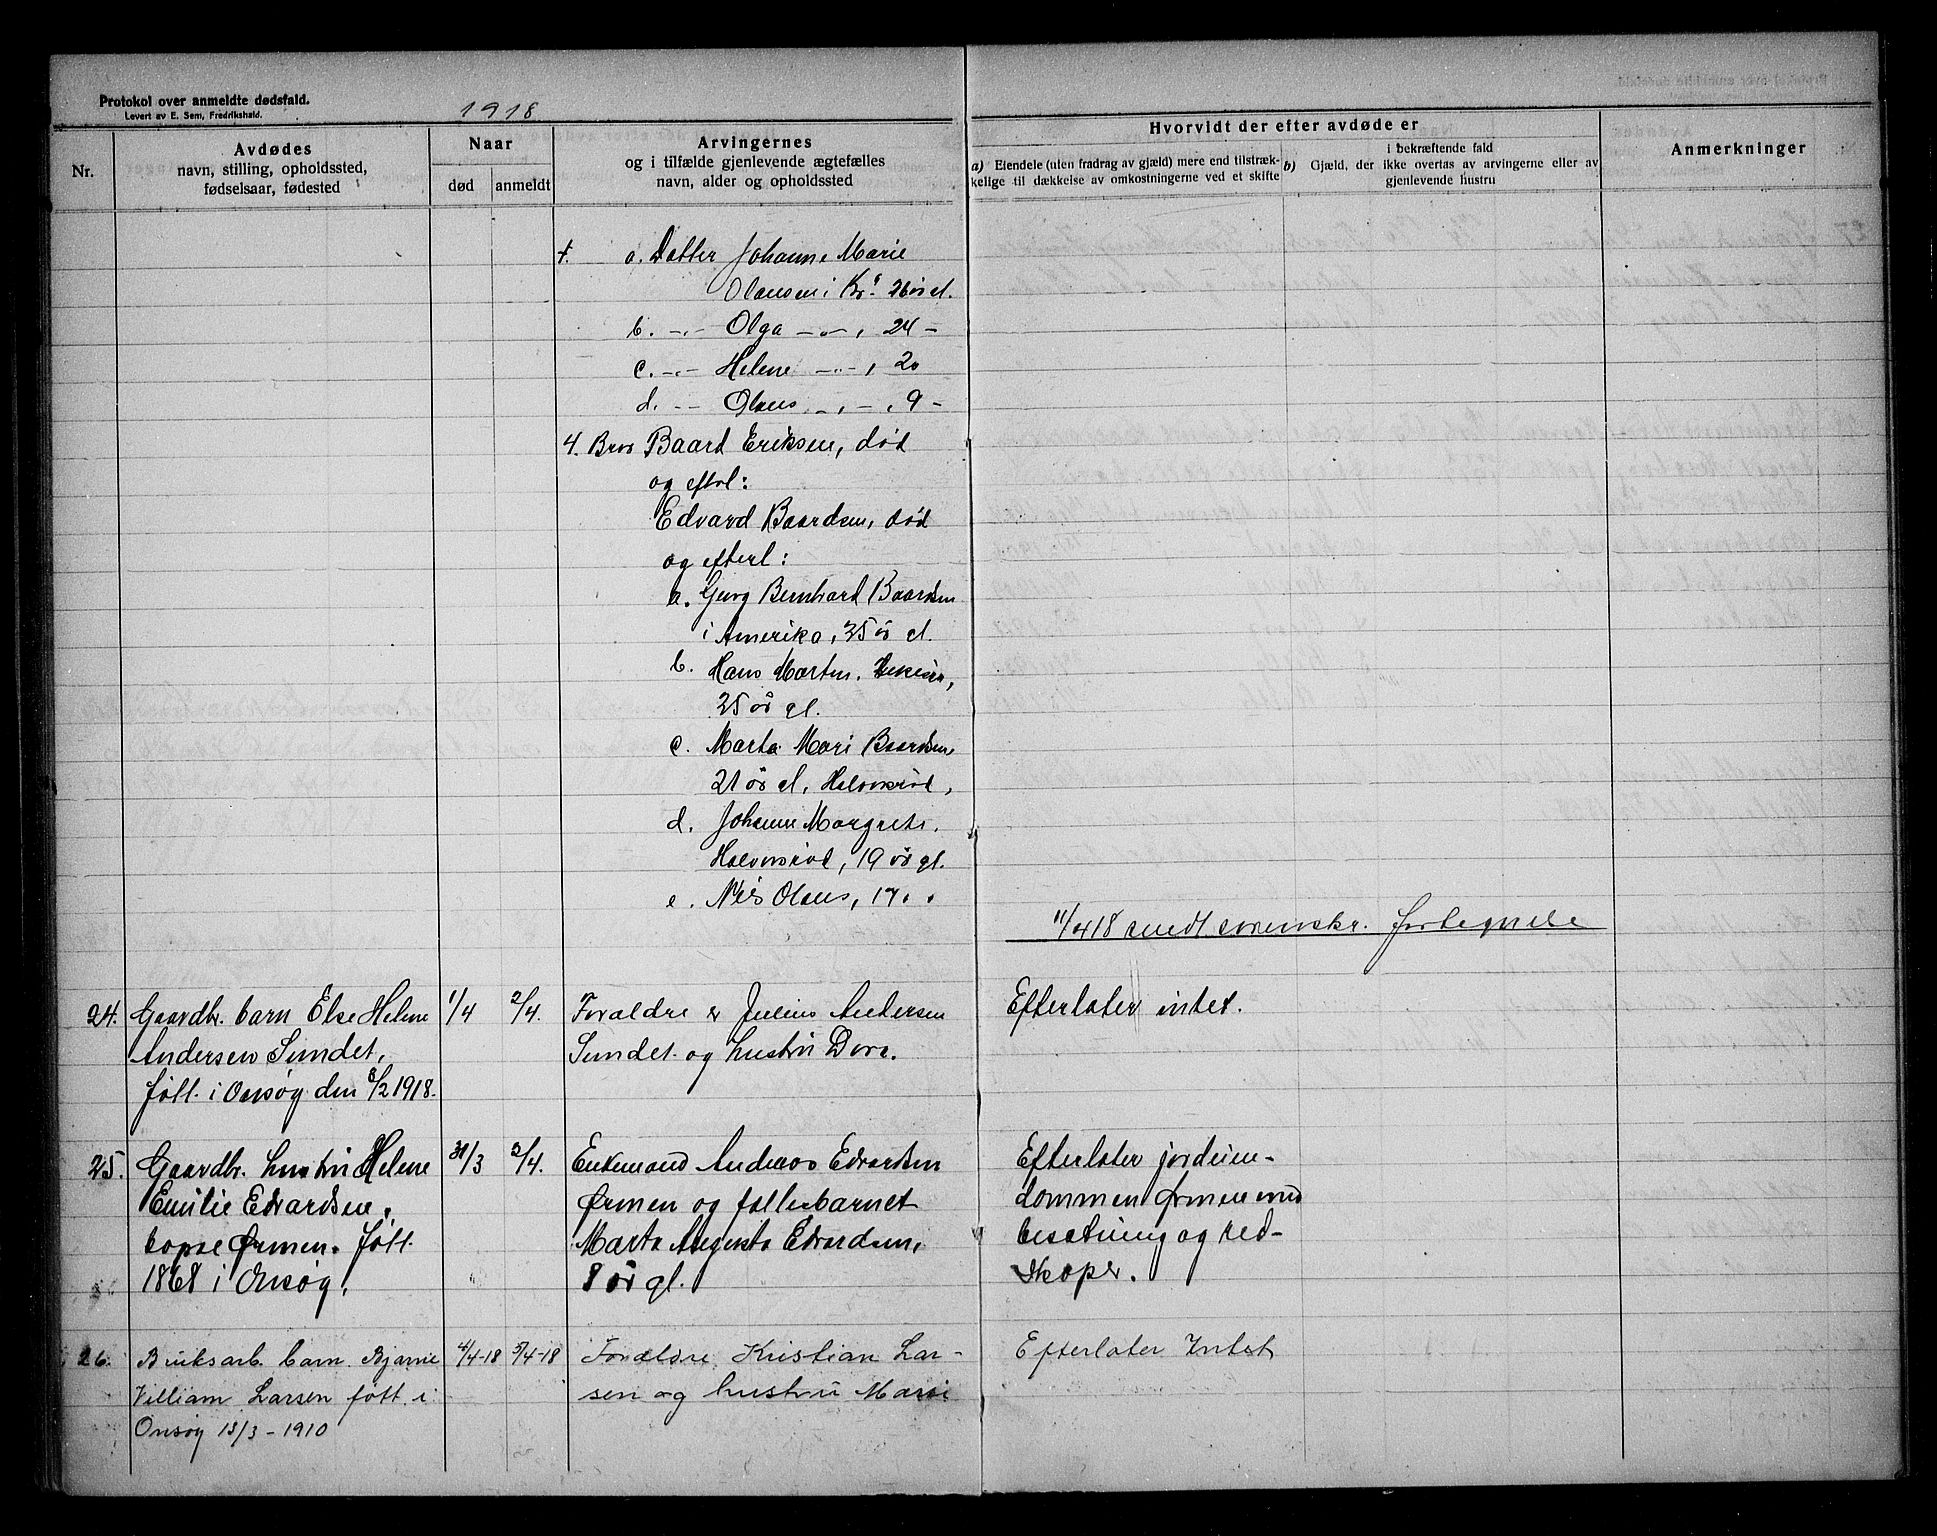 Protokol over anmeldte dødsfald.
Levert av E. Sem, Fredrikshald.
1918
Nr.
Avdødes
navn, stilling, opholdssted,
fødselsaar, fødested
Naar
død
anmeldt
Arvingernes
og i tilfælde gjenlevende ægtefælles
navn, alder og opholdssted
Hvorvidt der efter avdøde er
a) Eiendele (uten fradrag av gjæld) mere end tilstræk-
kelige til dækkelse av omkostningerne ved et skifte
i bekræftende fald
b) Gjæld, der ikke overtas av arvingerne eller av
gjenlevende hustru
Anmerkninger
a. Datter Johanne Marie
Olausen i Kr.a 26 år gl.
b. -„- Olga -„-, 24 -
c. -„- Helene -„-, 20
d. -- Olaus -„-, 9 -
4. Bror Baard Eriksen, død
og efterl:
Edvard Baardsen, død
og efterl:
a. Georg Bernhard Baardsen
i Amerika, 25 år gl.
b. Hans Martin,
25 år gl.
c. Marta Mari Baardsen,
21 år gl. Halvorsrød,
d. Johanne Margrete,
Halvorsrød, 19 år gl.
e. Nils Olaus, 17 „ „
11/4 18 sendt svenskr. fortegnelse
24. Gaardbr. barn Else Helene
Andersen Sundet,
født i Onsøy den 8/2 1918.
1/4
2/4.
Forældre er Julius Andersen
Sundet og hustru Dora.
Efterlater intet.
25. Gaardbr. hustru Helene
Emilie Edvardsen,
bopæl Ørmen. Født
1868 i Onsøy.
31/3
2/4.
Enkemand Andreas Edvardsen
Ørmen og fællesbarnet
Marta Augusta Edvardsen,
8 år gl.
Efterlater jordeien-
dommen Ørmen med
besætning og red-
skaper.
26. Bruksarb. barn Bjarne
Villiam Larsen født i
Onsøy 13/3 - 1910
4/4-18
5/4-18
Forældre Kristian Lar-
sen og hustru Marie
Efterlater Intet